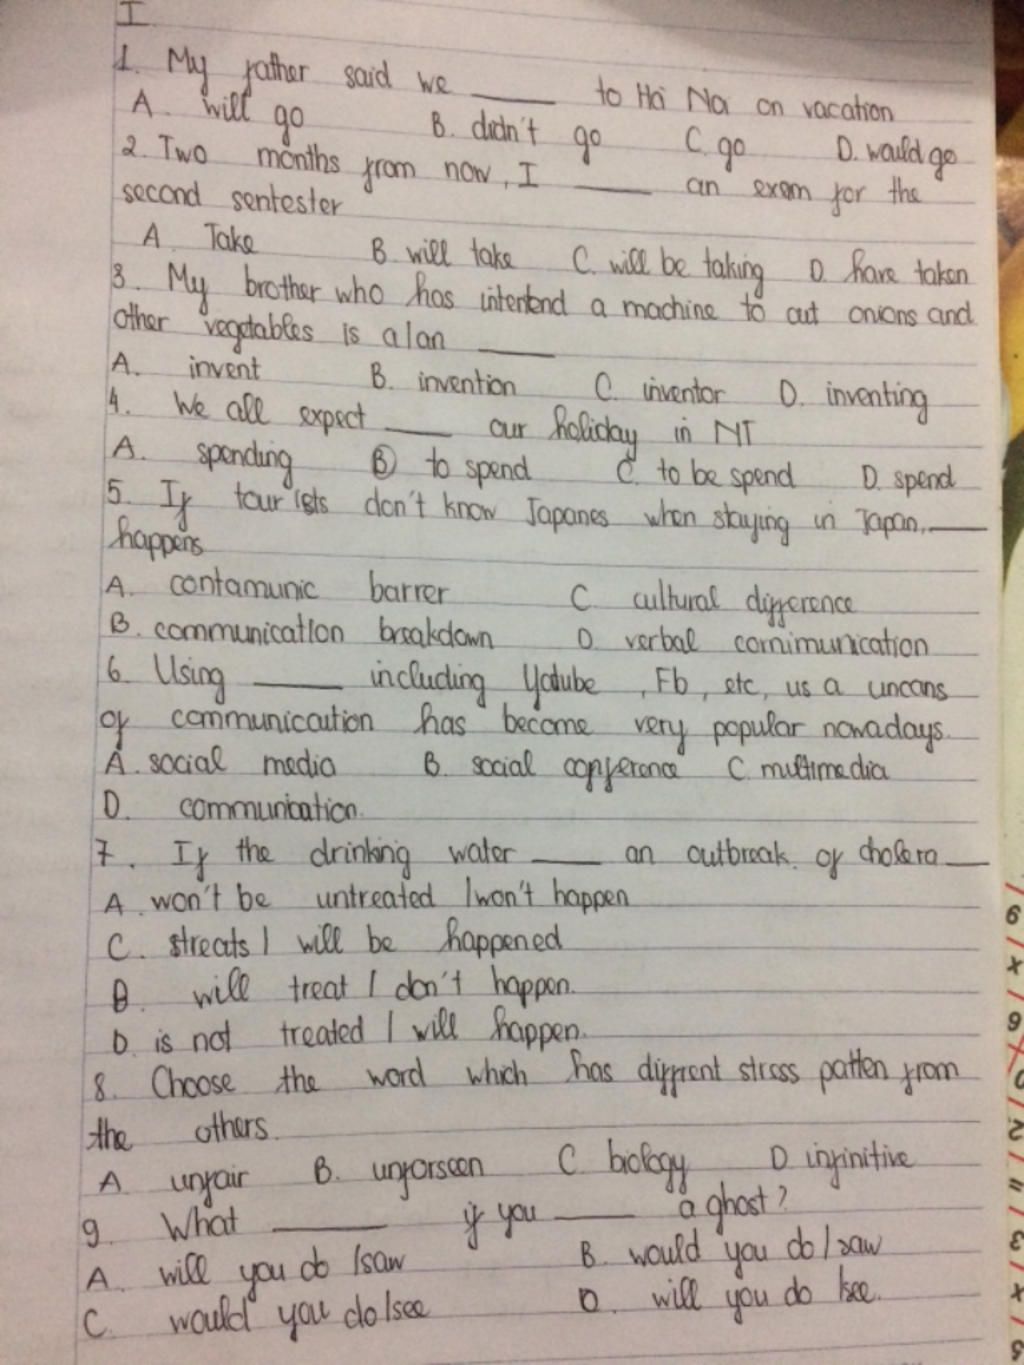 I.
1. My father said we ____ to Ha Noi on vacation
A. will go B. didn't go C. go D. would go
2. Two months from now, I ____ an exam for the
second sentester
A. Take B. will take C. will be taking D. have taken
3. My brother who has intertend a machine to cut onions and
other vegetables is alan ____
A. invent B. invention C. inventor D. inventing
4. We all expect ____ our holiday in NT
A. spending B to spend C. to be spend D. spend
5. If tourists don't know Japanes when staying in Japan, ____
happens
A. contamunic barrer C. cultural difference
B. communication breakdown D. verbal comimunication
6. Using ____ including Yotube, Fb, etc, us a uncans
of communicaution has become very popular nowadays.
A. social media B. social conference C. multimedia
D. communication.
7. If the drinking water ____ an outbreak. of cholera ____
A. won't be untreated / won't happen
C. streats / will be happened
B. will treat / don't happen.
D. is not treated / will happen.
8. Choose the word which has diffrent stress patten from
the others.
A. unfair B. unforseen C. biology D. infinitive
9. What ____ if you ____ a ghost?
A. will you do / saw B. would you do / saw
C. would you do / see D. will you do / see.